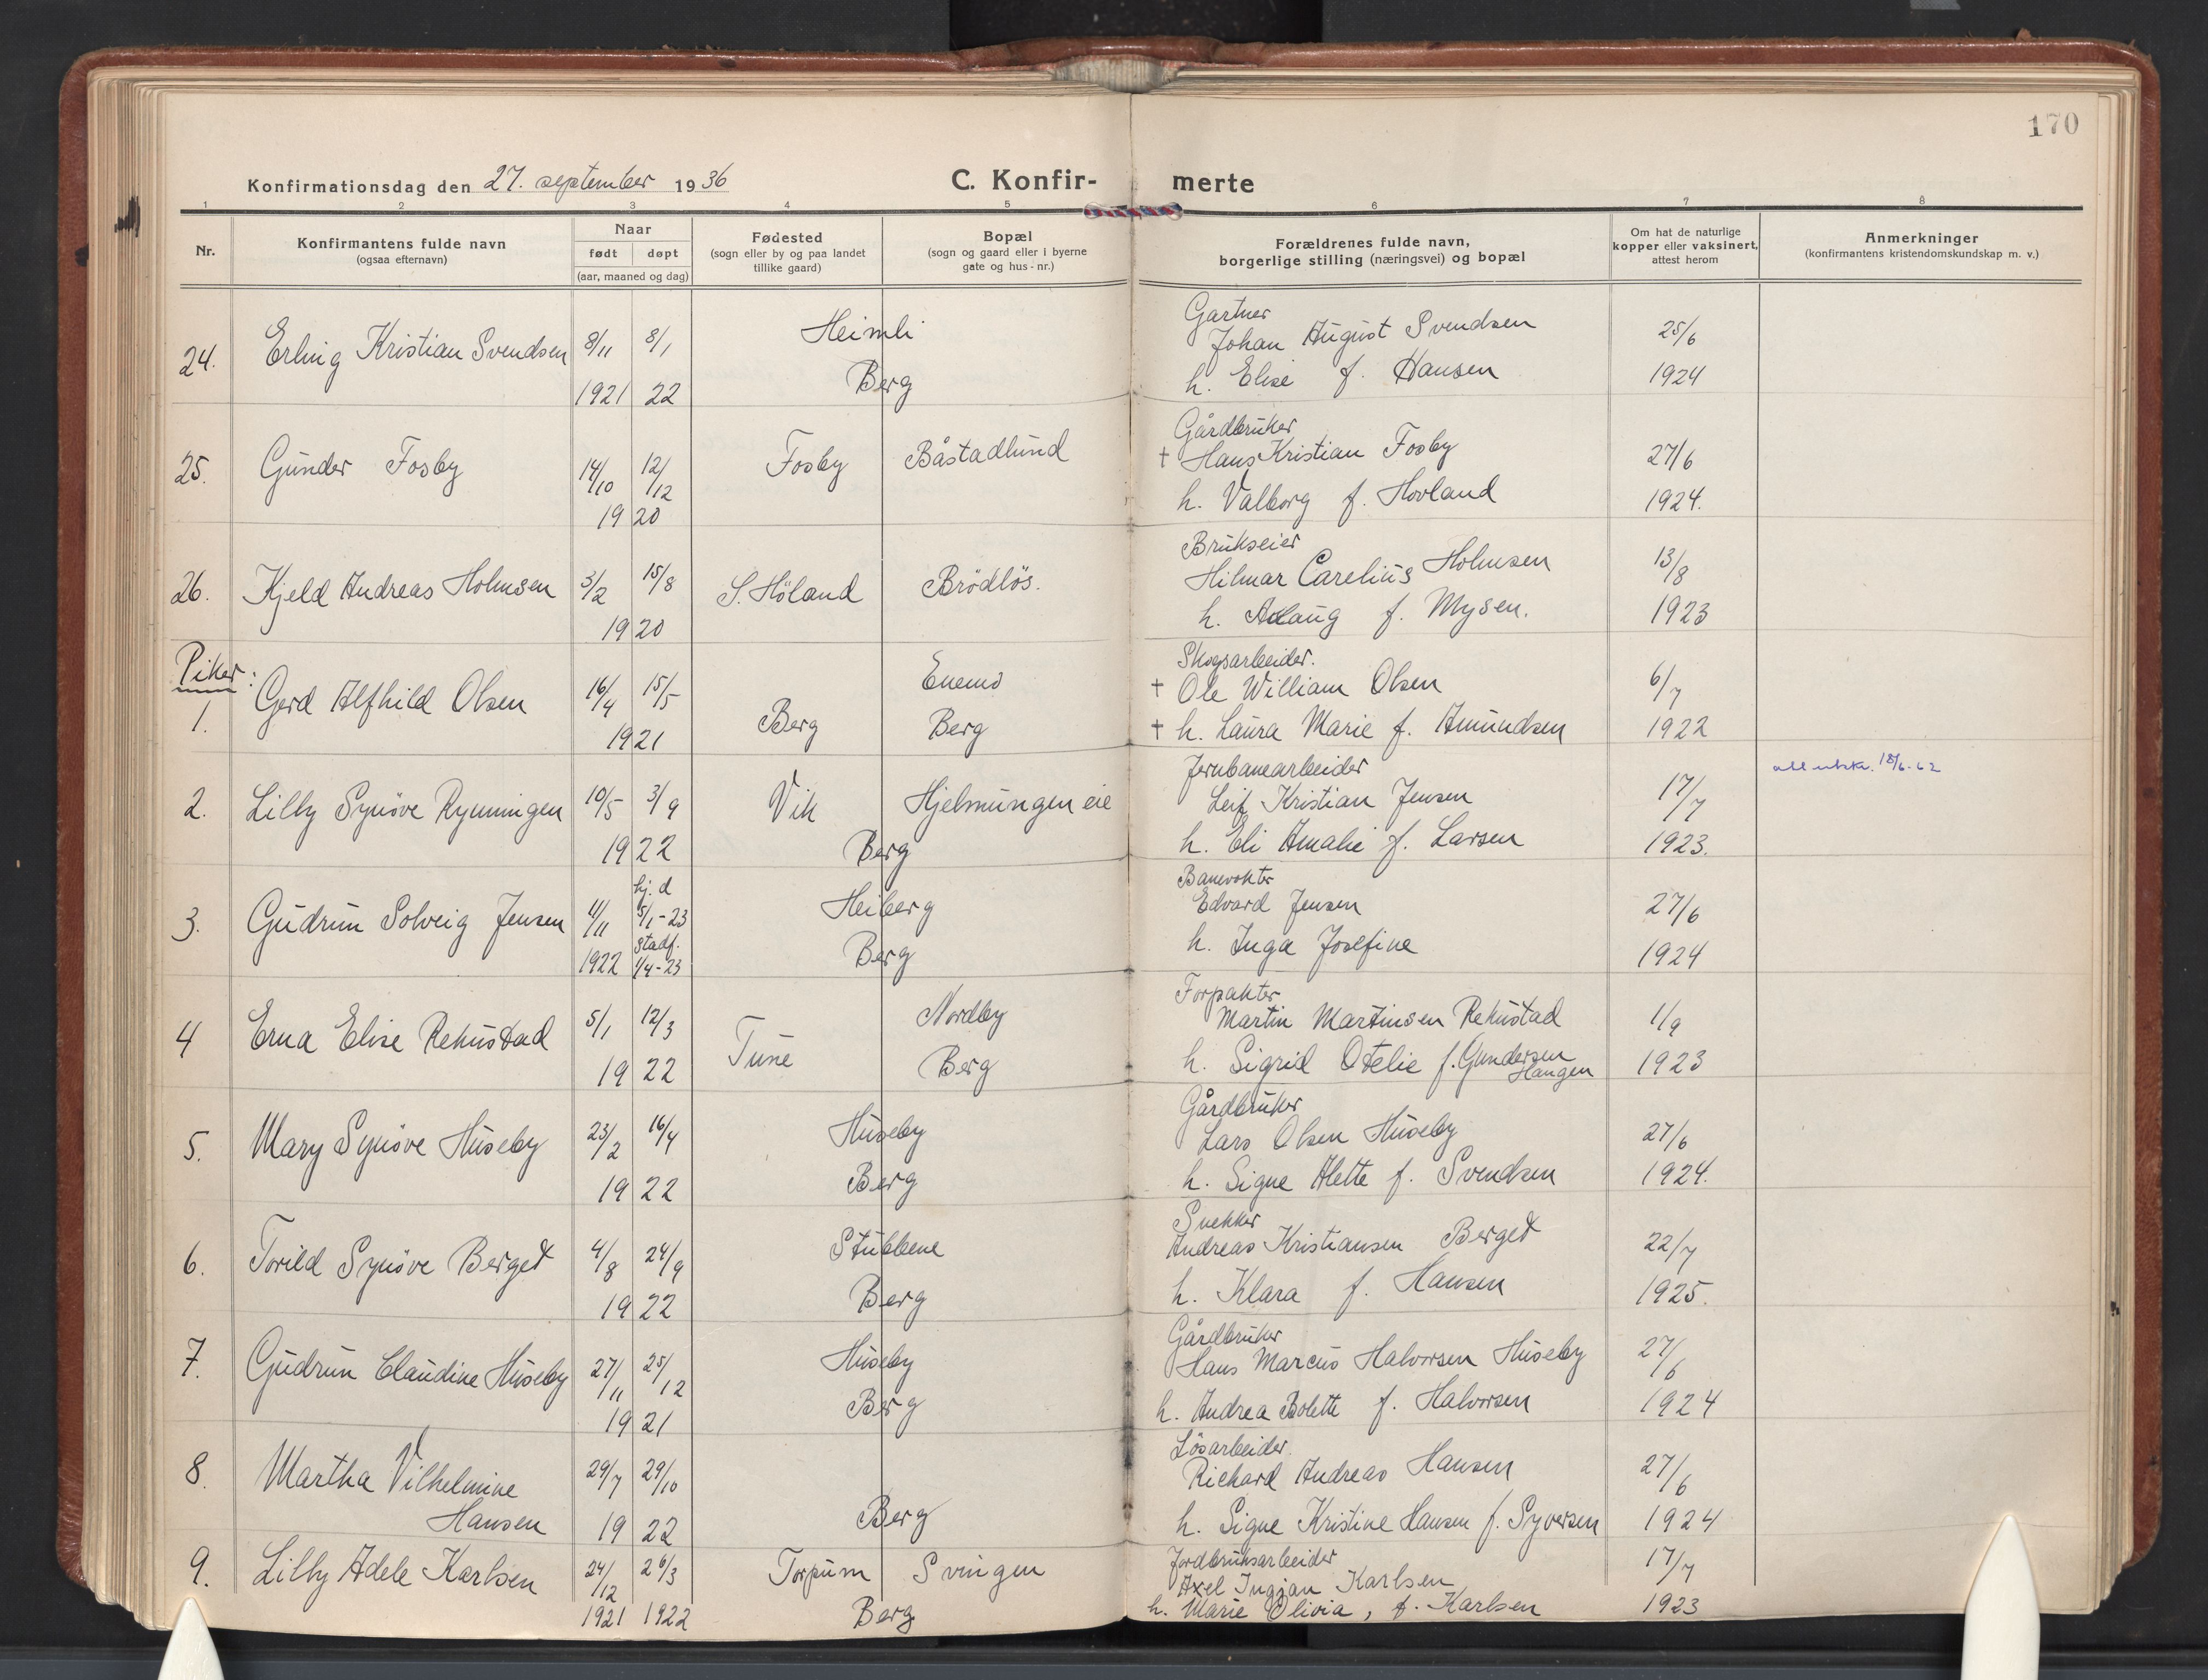 170
Konfirmationsdag den 27. september 1936
C. Konfir- merte
1 2 3 4 5 6 7 8
Nr.
Konfirmantens fulde navn
(ogsaa efternavn)
Naar
født døpt
(aar, maaned og dag)
Fødested
(sogn eller by og paa landet
tillike gaard)
Bopæl
(sogn og gaard eller i byerne
gate og hus-nr.)
Forældrenes fulde navn,
borgerlige stilling (næringsvei) og bopæl
Om hat de naturlige
kopper eller vaksinert,
attest herom
Anmerkninger
(konfirmantens kristendomskundskap m. v.)
24. Erling Kristian Svendsen 8/11 1921 8/1 22
Heimli
Berg
Gartner
Johan August Svendsen
h. Elise f. Hansen
25/6
1924
25. Gunder Fosby 14/10 12/12
1920
Fosby Båstadlund
Gårdbruker
† Hans Kristian Fosby
h. Valborg f. Hovland
27/6
1924.
26. Kjeld Andreas Holmsen 3/2 15/8
1920
S. Höland Brödlös.
Brukseier
Hilmar Carelius Holmsen
h. Aslaug f. Mysen.
13/8
1923
Piker:
1. Gerd Alfhild Olsen 16/4 15/5
1921
Berg
Enemo
Berg
Skogsarbeider.
† Ole William Olsen
† h. Laura Marie f. Amundsen
6/7
1922
2. Lilly Synöve Rynningen 10/5 3/9
1922
Vik Hjelmungen eie
Berg
Jernbanearbeider
Leif Kristian Jensen
h. Eli Amalie f. Larsen
17/7
1923.
18/6-62
3. Gudrun Solveig Jensen 4/11 1922
hj. d
5/1-23
stadf.
1/4-23
Heiberg
Berg
Banevokter
Edvard Jensen
h. Inga Josefine
27/6
1924
4 Erna Elise Rekustad 5/1 12/3
1922
Tune
Nordby
Berg
Forpakter
Martin Martinsen Rekustad
h. Sigrid Otelie f. Gundersen
Haugen
1/9
1923
5. Mary Synöve Huseby 23/2 16/4
1922
Huseby
Berg
Gårdbruker
Lars Olsen Huseby
h. Signe Alette f. Svendsen
27/6
1924.
6. Torild Synöve Berget 4/8 24/9
1922
Stubbene
Berg
Snekker
Andreas Kristiansen Berget
h. Klara f. Hansen
22/7
1925.
7. Gudrun Claudine Huseby 27/11 25/12
1921
Huseby
Berg
Gårdbruker
Hans Marcus Halvorsen Huseby
h. Andrea Bolette f. Halvorsen
27/6
1924
8. Martha Vilhelmine
Hansen
29/7 29/10
1922
Berg
Lösarbeider.
Richard Andreas Hansen
h. Signe Kristine Hansen f. Syversen
27/6
1924
9. Lilly Adele Karlsen 24/12 26/3
1921 1922
Torpum Svingen
Berg
Jordbruksarbeider
Axel Ingjan Karlsen
h. Marie Olivia, f. Karlsen
17/7
1923